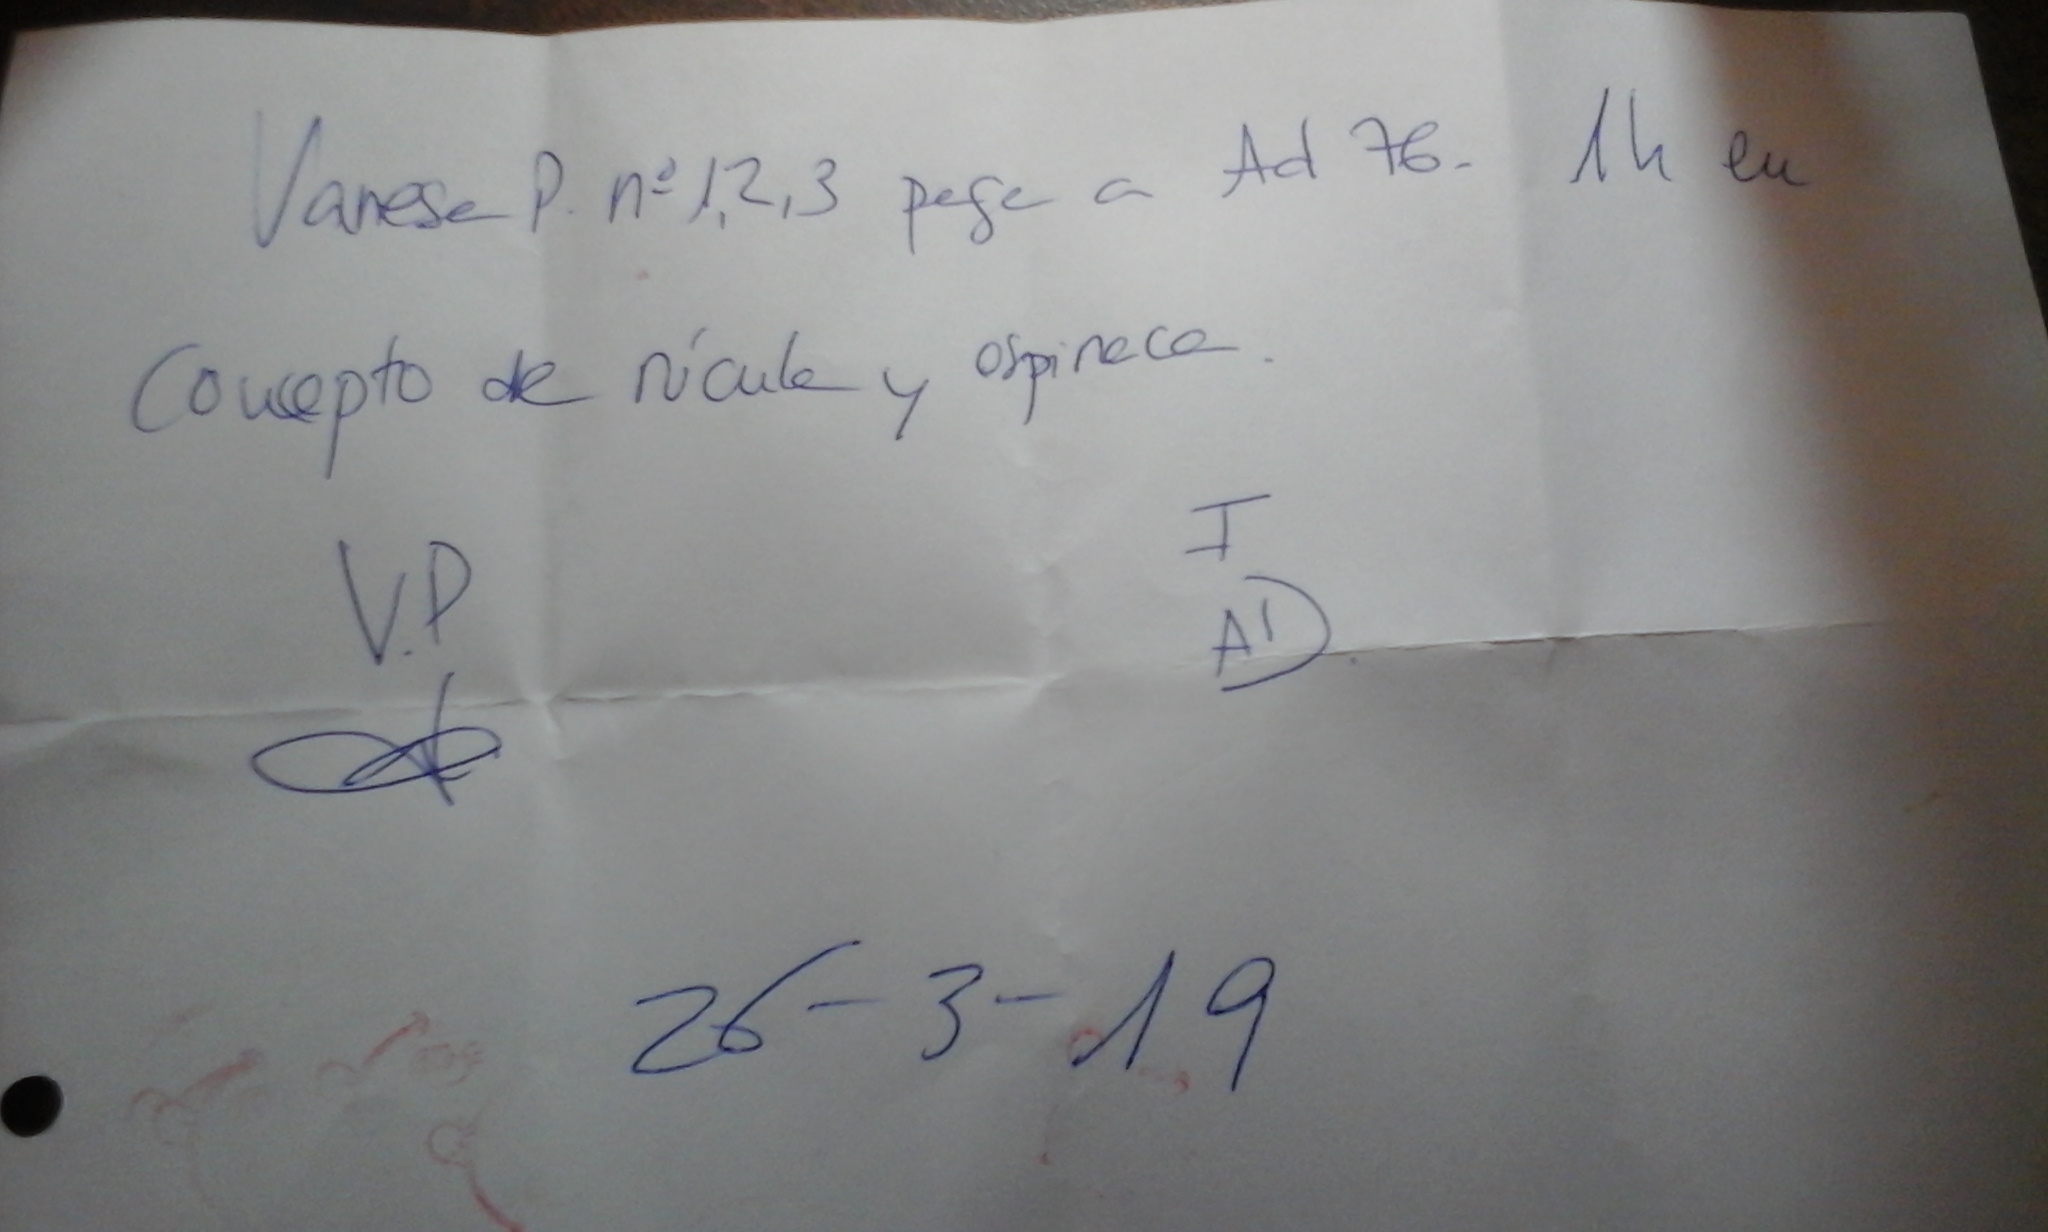 Vanesa P. nº 1,2,3 paga a Ad 76. 1h en
Concepto de rúcula y espinaca.
V.P
I
AD
26-3-19